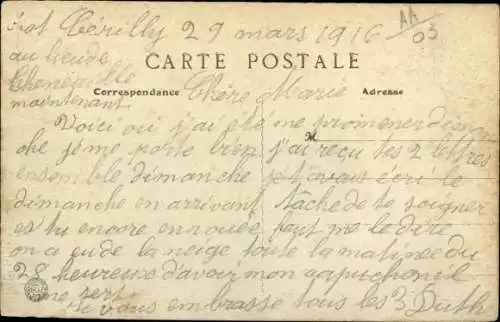 Cérilly 29 mars 1916
au lieu de
maintenant
AA
03
CARTE POSTALE
Correspondance
Adresse
Chère Marie
Voici où j'ai été me promener diman
M
che je me porte bien j'ai reçu tes 2 lettres
ensemble dimanche je t'avais écri le
dimanche en arrivant tâche de te soigner
es tu encore enrouée faut me le dire
on a eu de la neige toute la matinée du
28 heureuse d'avoir mon capuchon il
me sert
je vous embrasse tous les 3